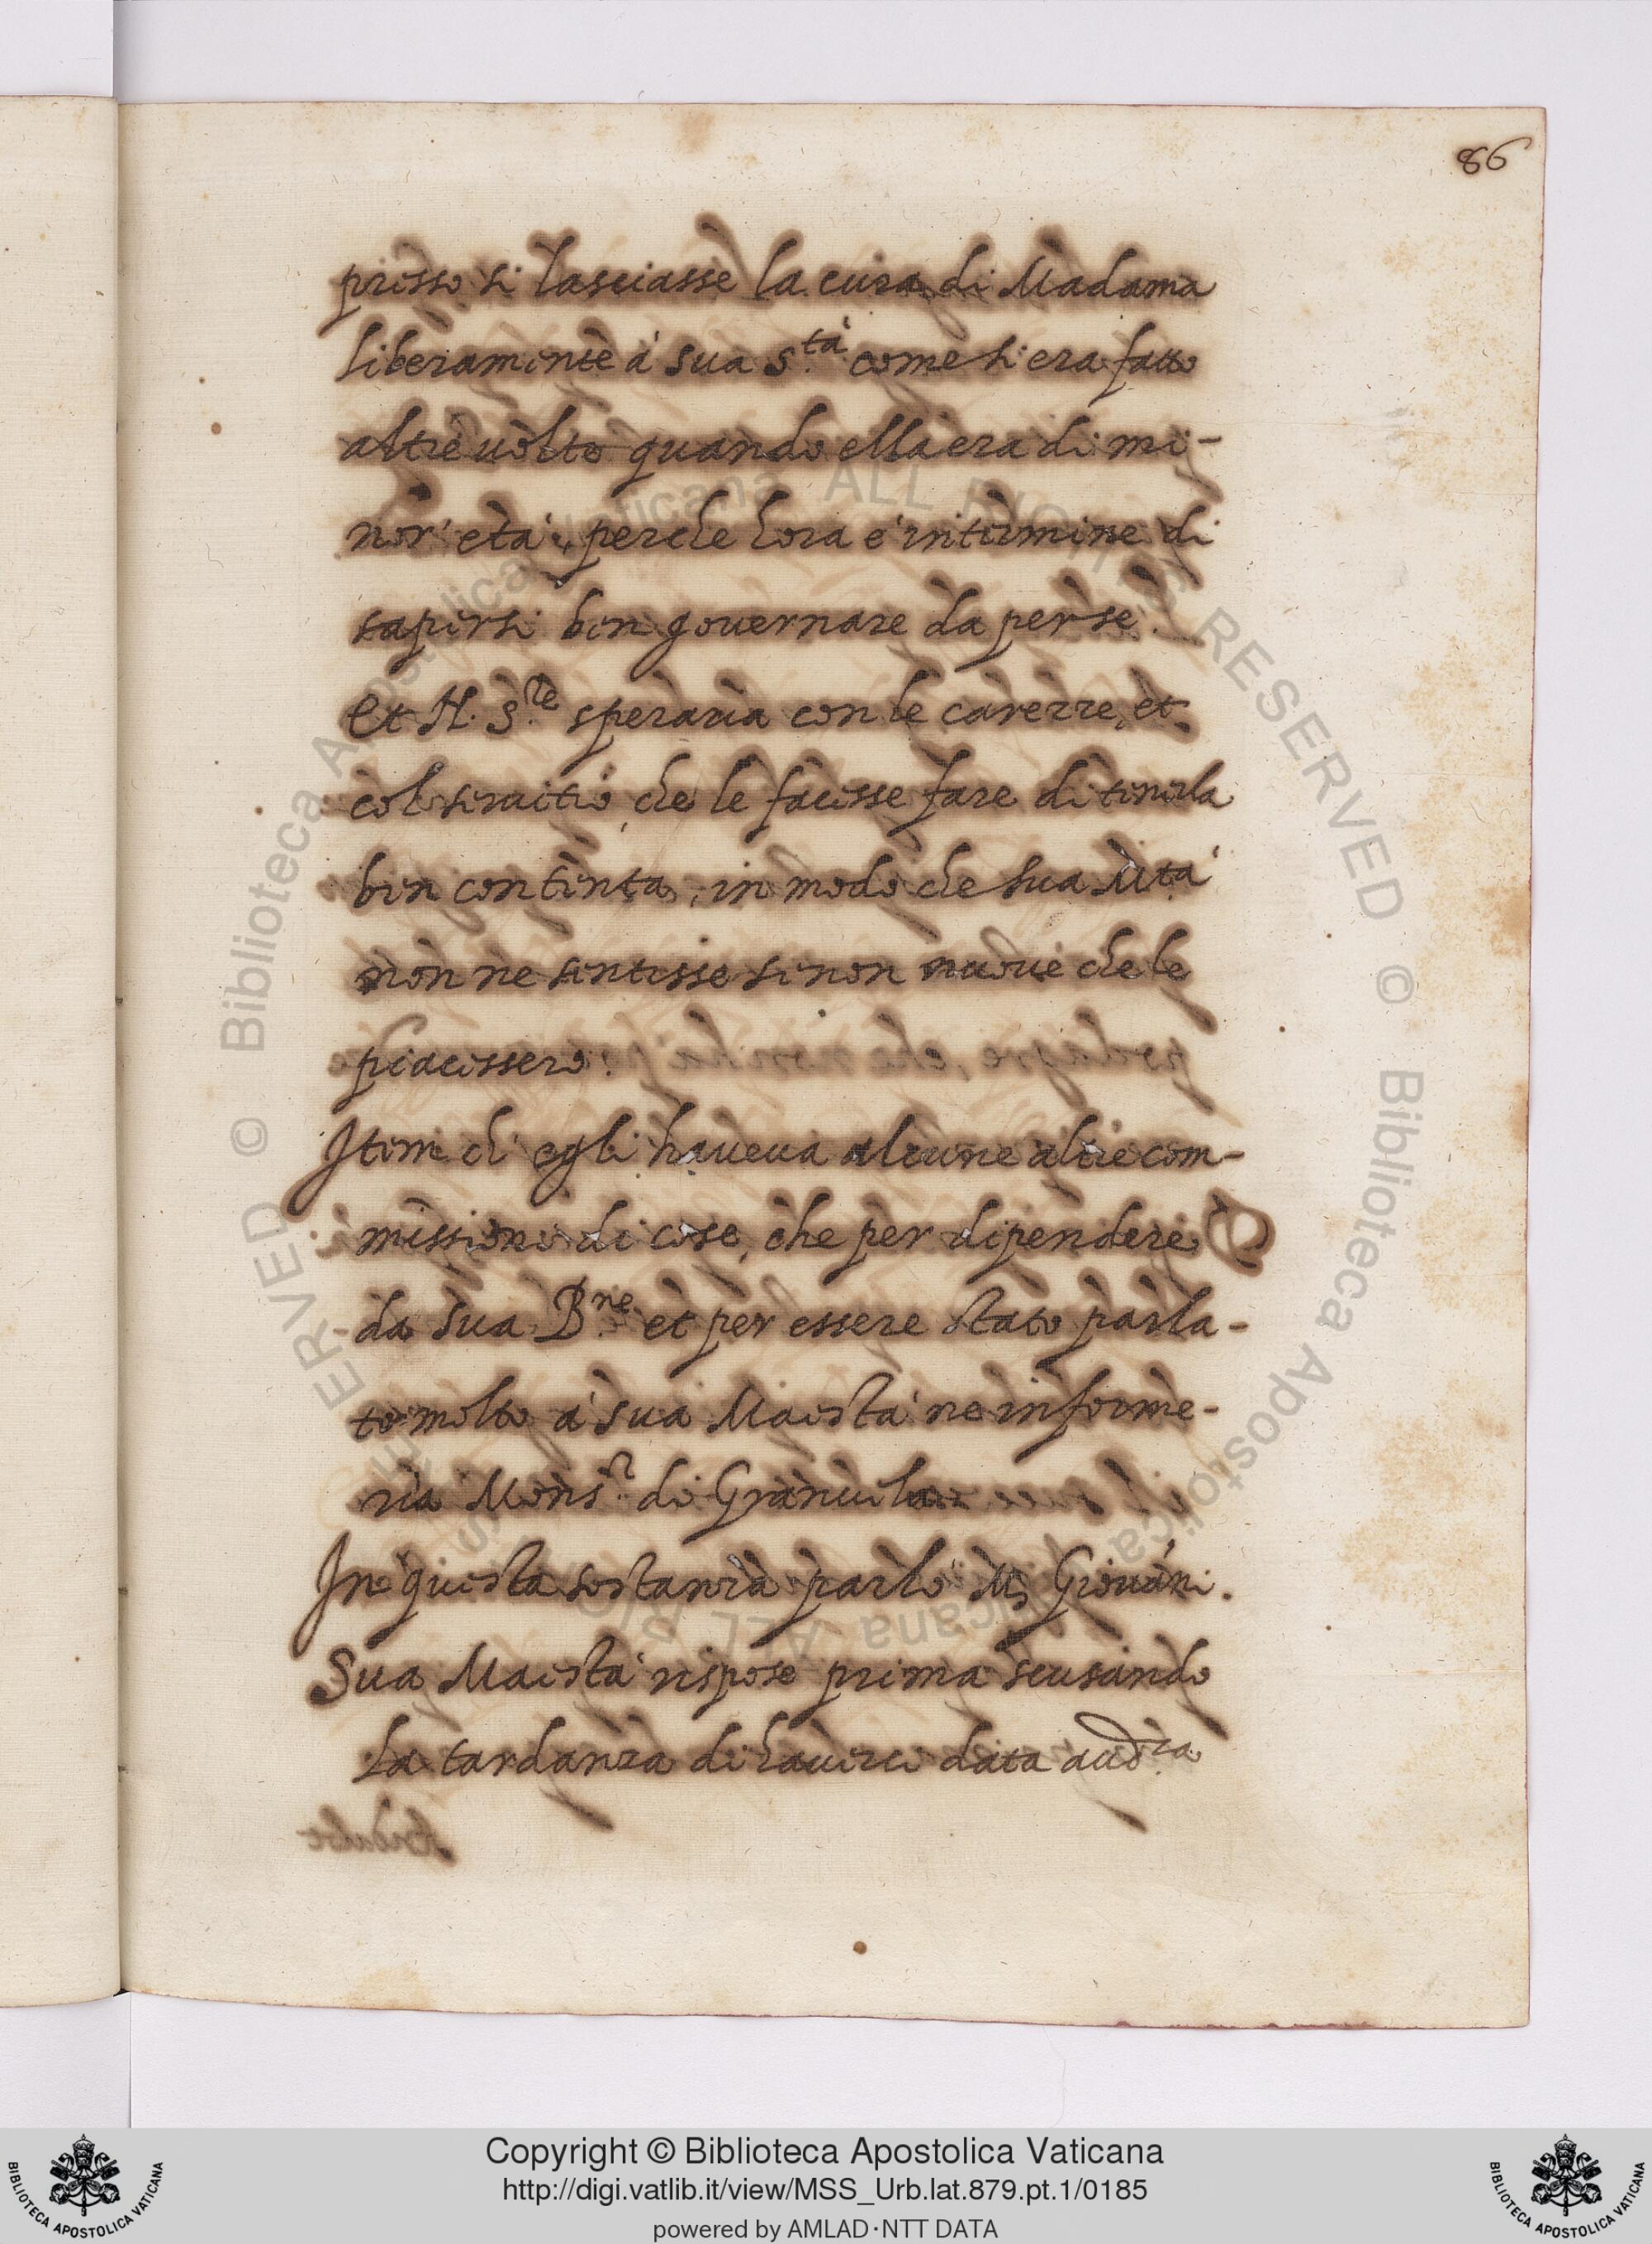 86
presso si lasciasse la cura di Madama
liberamente à sua S.tà come si era fatto
altre uolte quando ella era di mi-
nor' età, perche hora è in termine di
sapersi ben gouernare da per se.
Et N. S.re speraria con le carezze, et
col seruitio, che le facesse fare di tenerla
ben contenta, in modo che sua M.tà
non ne sentisse se non nuoue che le
piacessero.
Item ch' egli haueua alcune altre com-
missioni di cose, che per dipendere
da sua B.ne et per essere stato parla-
to molto à sua Maestà ne informe-
ria Mons.r di Granuela
In questa sostanza parlò M. Giouàni.
Sua Maestà rispose prima scusando
la tardanza di hauerci data aud.za
Copyright © Biblioteca Apostolica Vaticana
http://digi.vatlib.it/view/MSS_Urb.lat.879.pt.1/0185
powered by AMLAD·NTT DATA
BIBLIOTECA APOSTOLICA VATICANA
BIBLIOTECA APOSTOLICA VATICANA